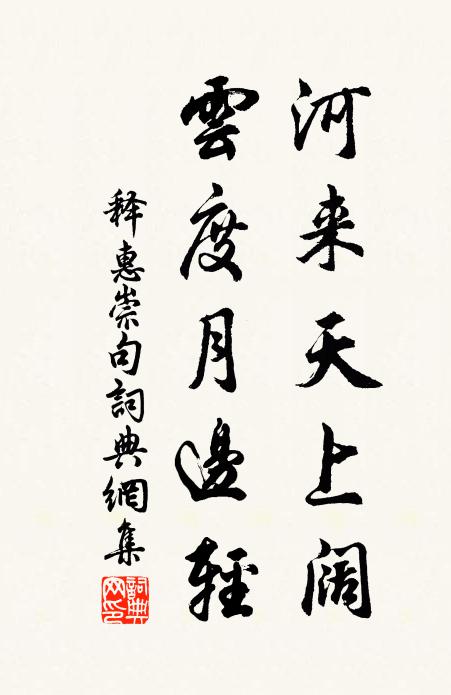 河来天上阔
雲度月邊輕
释惠崇句詞典網集
詞典网印